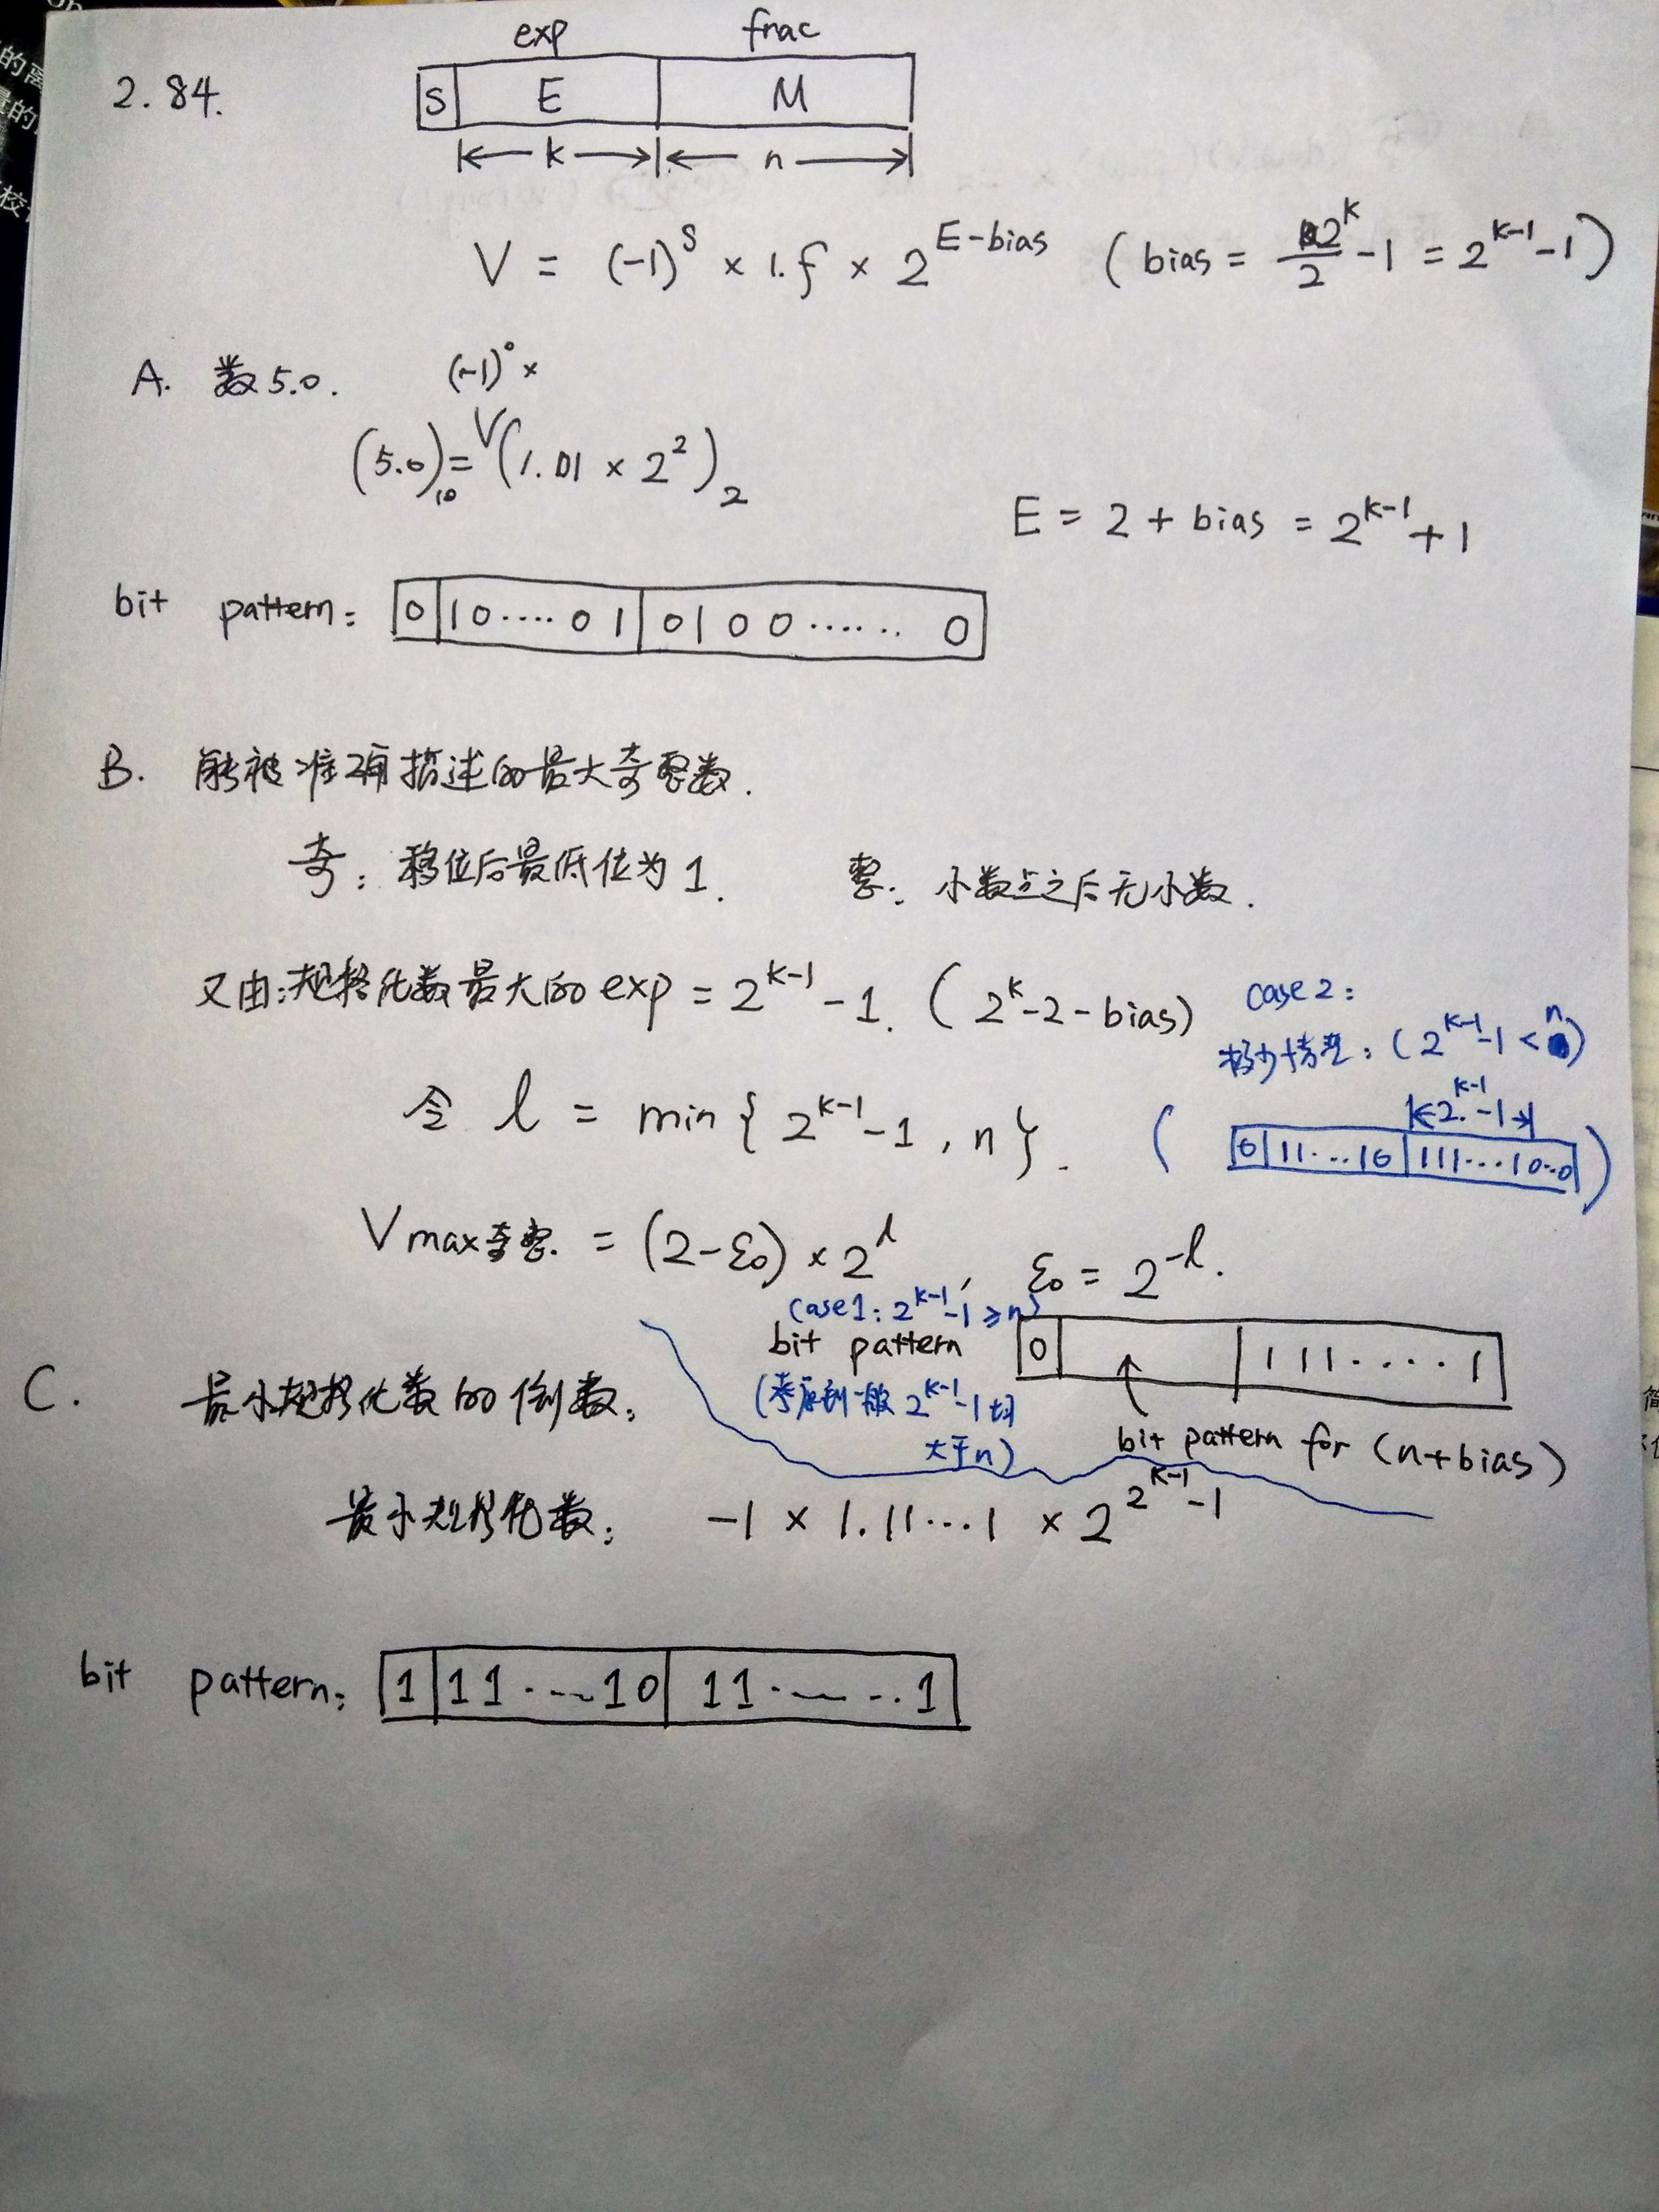 exp frac
2.84. S E M
k n
V = (-1)^S × 1.f × 2^{E-bias} (bias = 2^k/2 -1 = 2^{k-1}-1)
A. 数5.0. (-1)^0 ×
(5.0)_10 = (1.01 × 2^2)_2
E = 2 + bias = 2^{k-1}+1
bit pattern: 0 10....01 0100...... 0
B. 能被准确描述的最大奇整数.
奇: 移位后最低位为1. 整: 小数点之后无小数.
又由:规格化数最大的exp = 2^{k-1}-1. (2^k-2-bias)
case2:
极少情况: (2^{k-1}-1 < n)
令 l = min{2^{k-1}-1, n}.
2^{k-1}-1
( 0 11...10 111...10..0 )
Vmax奇整. = (2-ε0) × 2^l, ε0 = 2^{-l}.
(case1: 2^{k-1}-1 ≥ n)
bit pattern 0 111....1
(考虑到一般 2^{k-1}-1 均
大于n)
bit pattern for (n+bias)
C. 最小规格化数的倒数:
最小规格化数: -1 × 1.11...1 × 2^{2^{k-1}-1}
bit pattern: 1 11...10 11......1
的离
量的
校